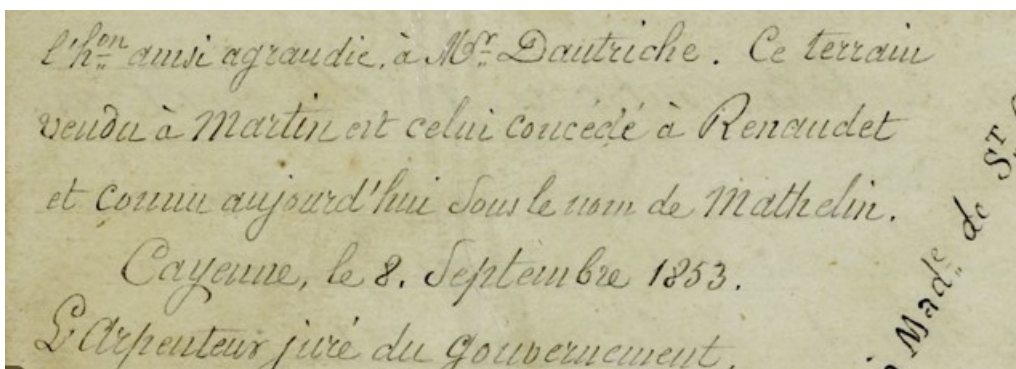 l'hon ainsi agrandie, à Mr. Dautriche. Ce terrain
vendu à Martin est celui concédé à Renaudet
et connu aujourd'hui sous le nom de Mathelin.
Cayenne, le 8. Septembre 1853.
L'Arpenteur juré du gouvernement,
Made de St